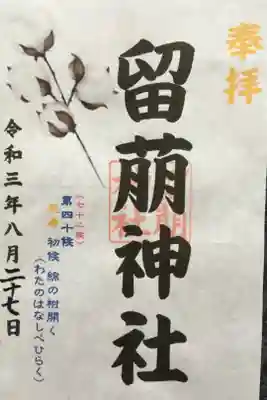 奉拝
留萠神社
(七十二候)
第四十候
処暑 初候 綿の柎開く
(わたのはなしべひらく)
令和三年八月二十七日